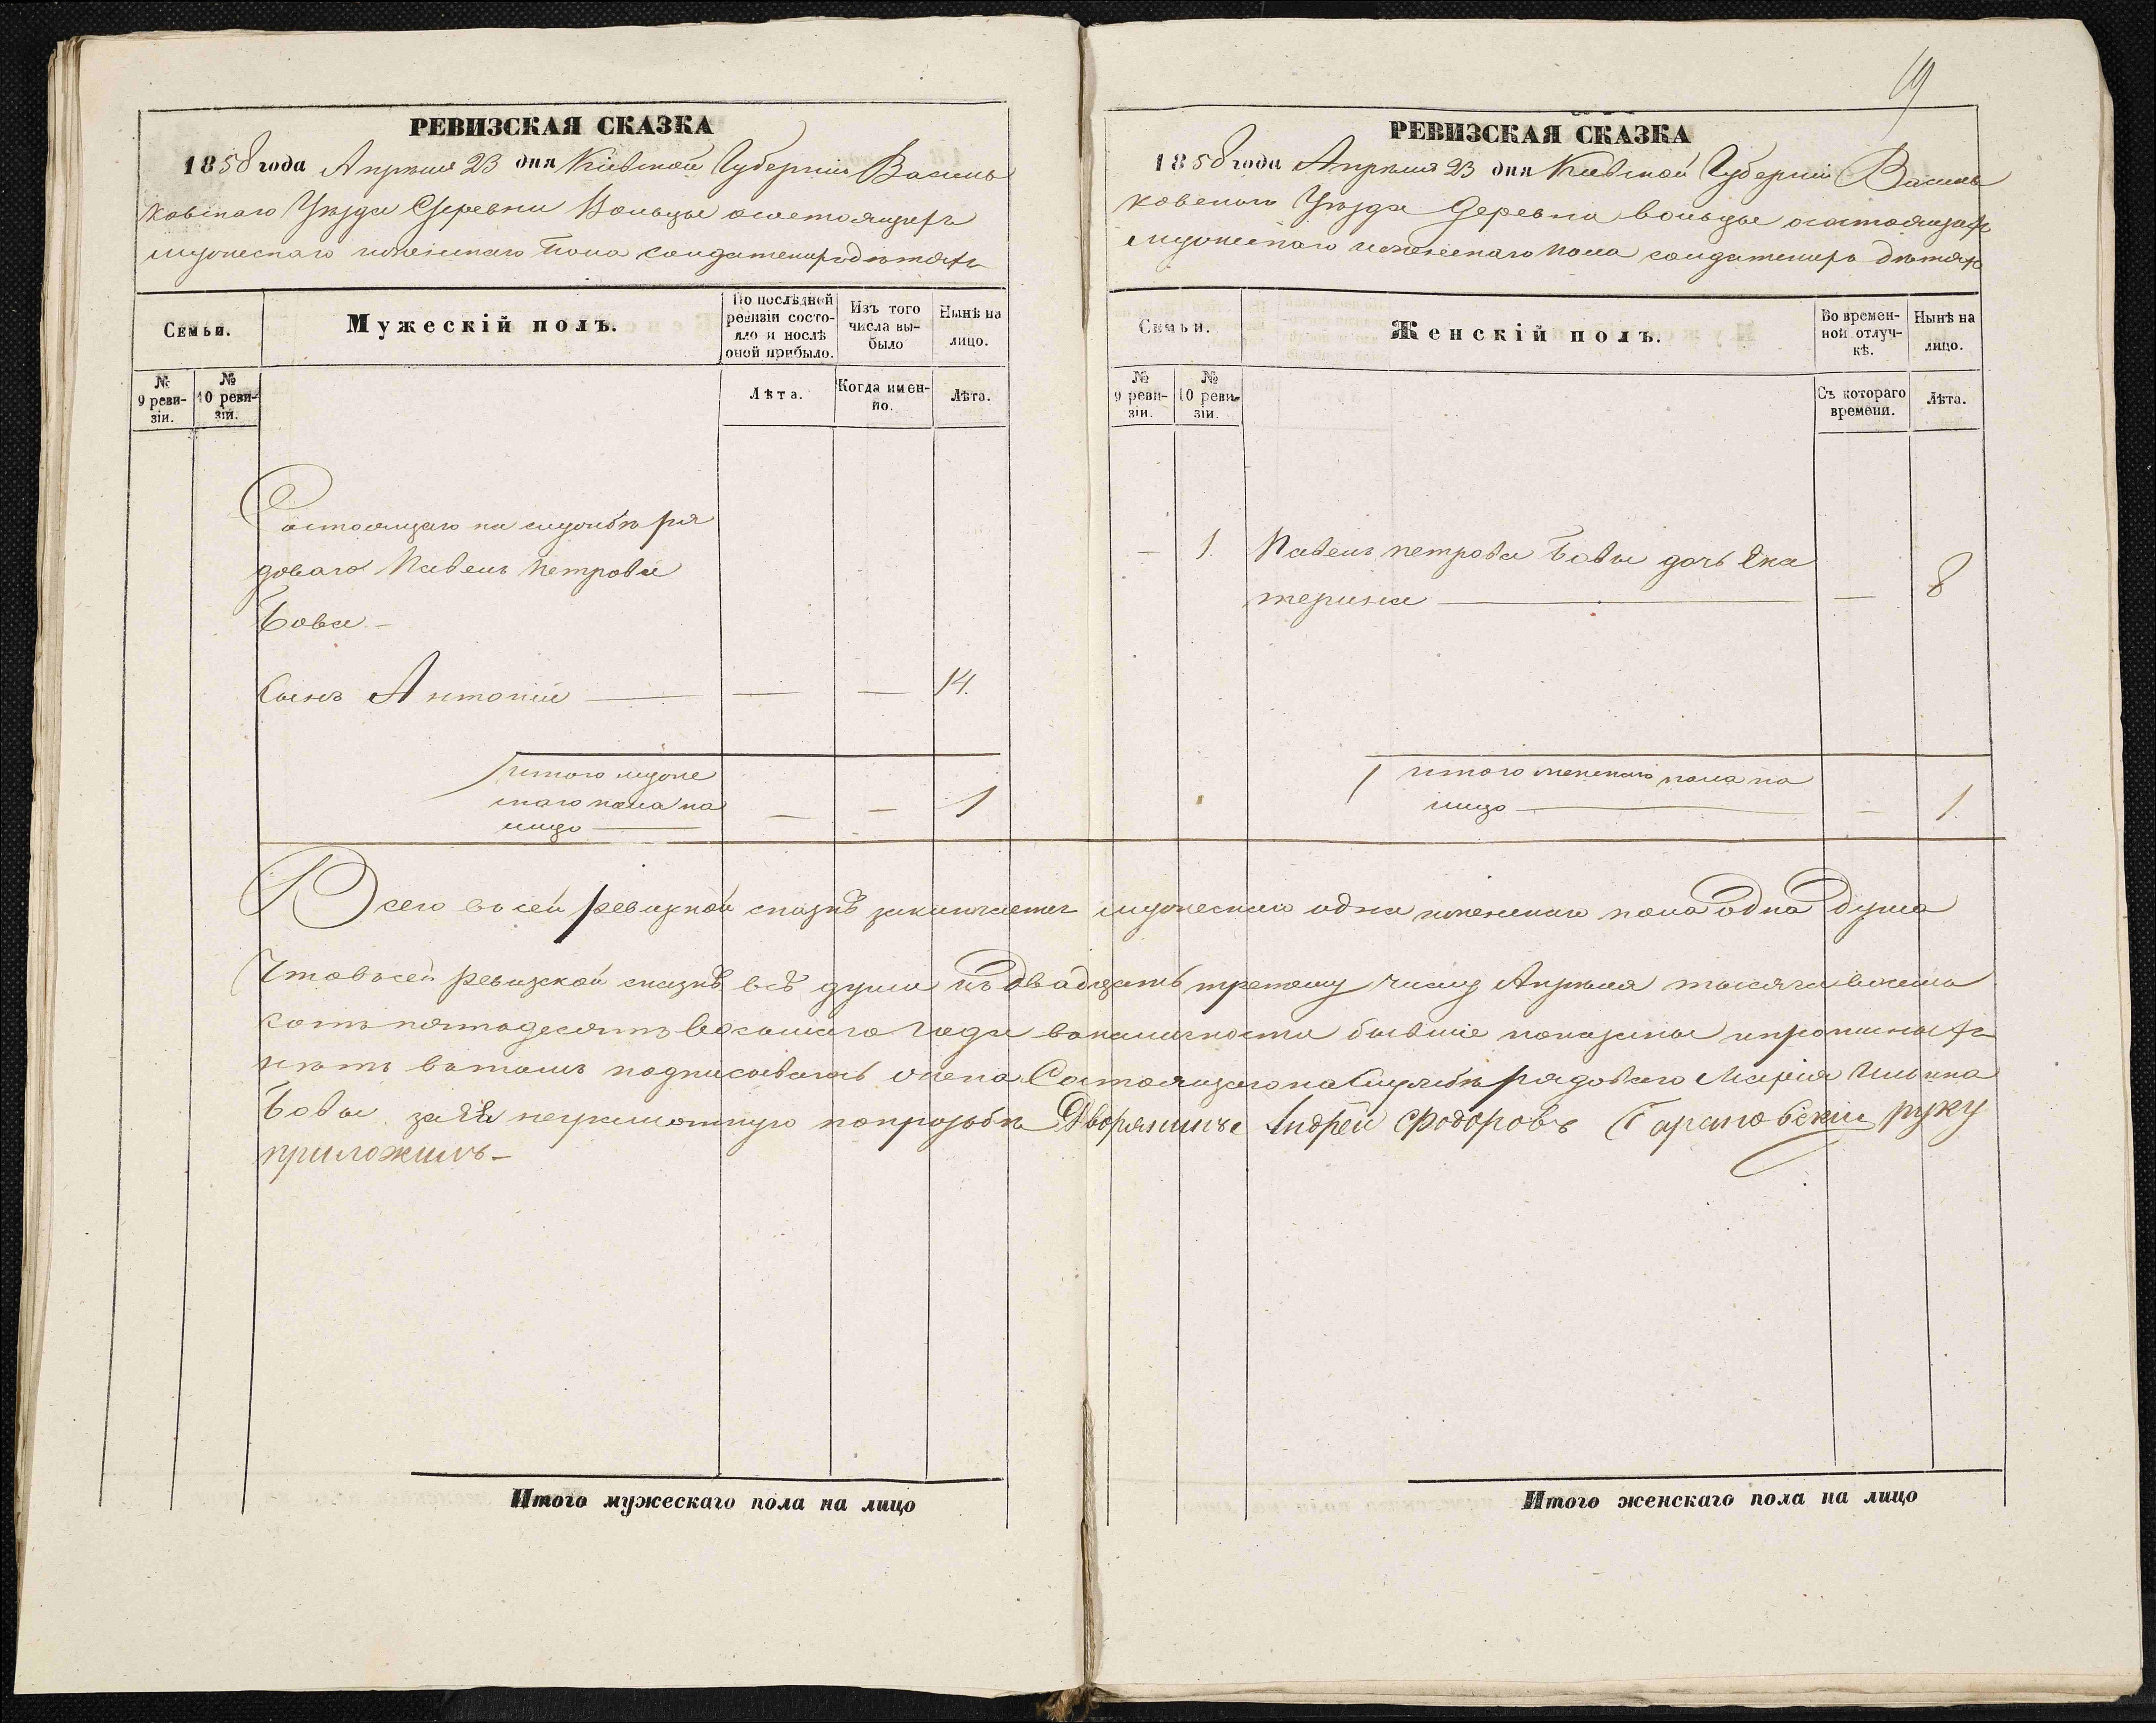 РЕВИЗСКАЯ СКАЗКА
1858 года Апреля 23 дня Кіевской Губерніи Василь
ковскаго Уѣзда Деревни Вольцы осостоящихъ
мужескаго иженскаго пола солдатскихъ дѣтяхъ
Семьи.
Мужескій полъ.
По послѣдней ревизіи состояло и послѣ оной прибыло.
Изъ того числа выбыло
Нынѣ на лицо.
№ 9 ревизіи.
№ 10 ревизіи.
Лѣта.
Когда именно.
Лѣта.
Состоящаго на службѣ ря
доваго Павелъ Петрова
Бова –
Сынъ Антоній — — — 14.
итого муже
скаго пола на
лицо — — — 1
19
РЕВИЗСКАЯ СКАЗКА
1858 года Апреля 23 дня Кіевской Губерніи Василь
ковскаго Уѣзда Деревни вольцы
мужескаго иженскаго пола солдатскихъ дѣтяхъ
Семьи.
Женскій полъ.
Во временной отлучкѣ.
Нынѣ на лицо.
№ 9 ревизіи.
№ 10 ревизіи.
Съ котораго времени.
Лѣта.
— 1. Павелъ петрова Бовы дочь Ека
терина — — 8
итого женскаго пола на
лицо — — 1.
Всего въ сей ревизкой сказкѣ заключается мужескаго одна иженскаго пола Одна Душа
Что въсей ревизской сказкѣ всѣ души къ Двадцать третему числу Апреля тысяча восемь
сотъ пятадесятъ Восьмаго Года ваналичности бывшіе показаны ипрописныхъ
нѣтъ вътомъ подписываюсь жена Состоящаго на Службѣ рядоваго Марія Ильина
Бовы за Её неграмотную попрозьбѣ Дворянинъ Андрей Федоровъ руку
приложилъ –
Итого мужескаго пола на лицо
Итого женскаго пола на лицо